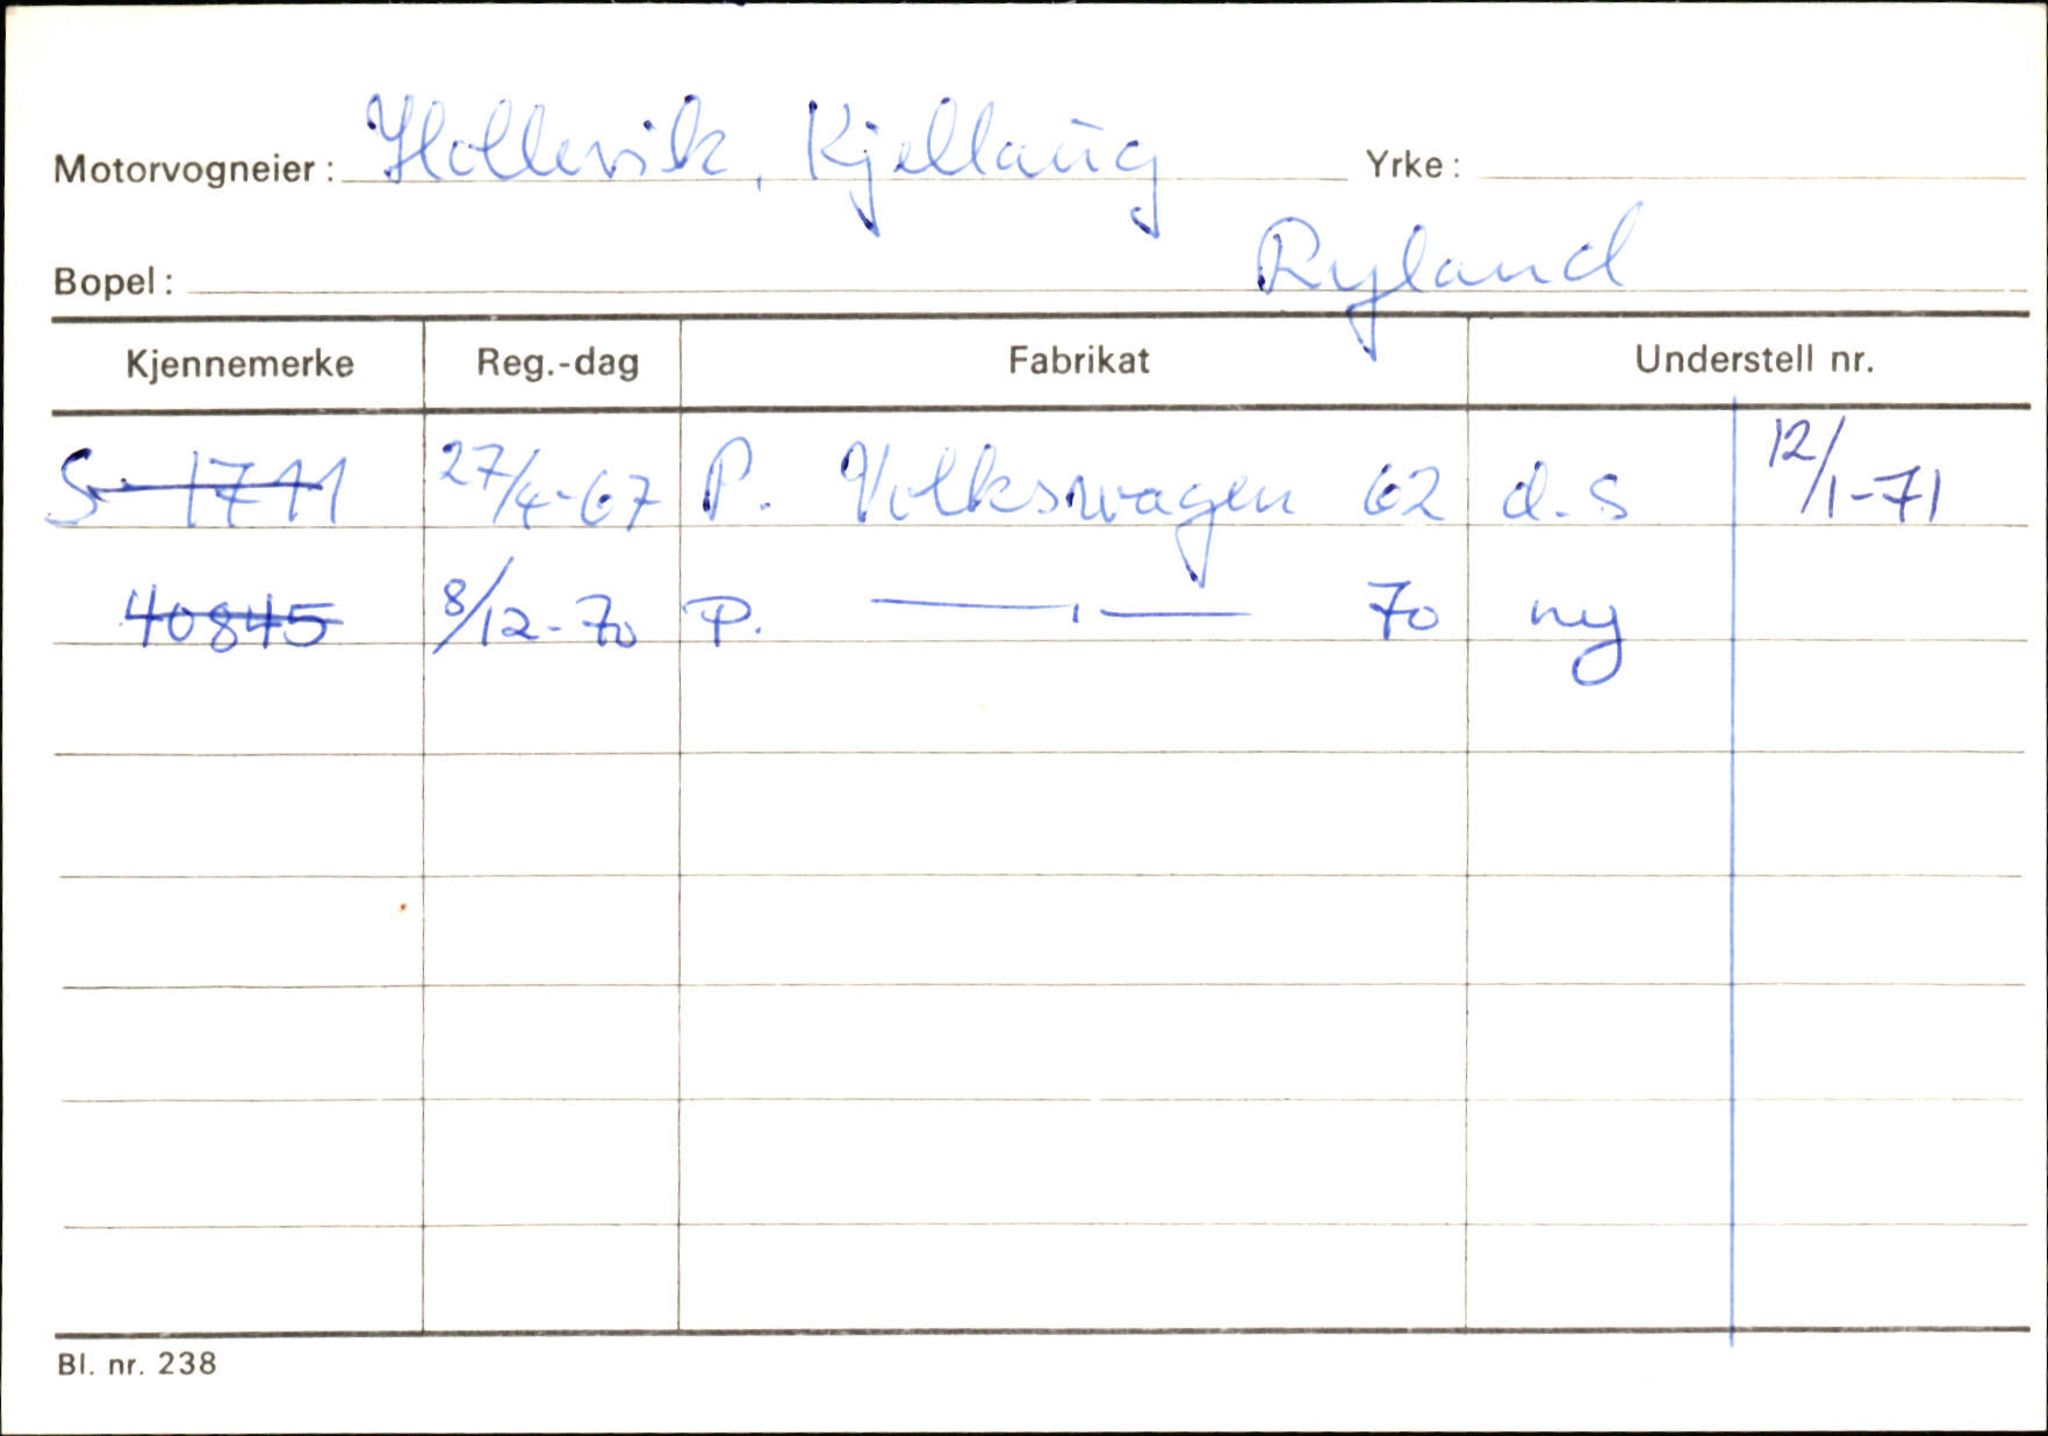 Motorvogneier: Hollevik, Kjellaug Yrke:
Bopel: Ryland
Kjennemerke Reg.-dag Fabrikat Understell nr.
S- 1711 27/4-67 P. Volkswagen 62 d.s 12/1-71
40845 8/12-70 P. —"— 70 ny
Bl. nr. 238